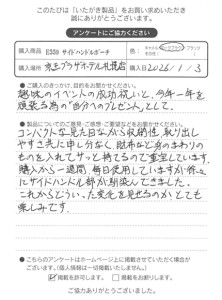 このたびは「いたがき製品」をお買い求めいただき
誠にありがとうございます。
アンケートにご協力ください
購入商品 E530 サイドハンドルポーチ
色：キャメル ブラック
購入場所 京王プラザホテル札幌店 購入日 2026／1／3
●ご購入のきっかけ、目的をお聞かせください。
趣味のイベントの成功祝いと、今年一年を
頑張る為の“自分へのプレゼント”として。
●製品についてのご意見、ご感想・ご要望などをお聞かせください。
コンパクトな見た目ながら収納性、取り出し
やすさ共に申し分なく、財布など身のまわりの
ものを入れてサッと持てるので重宝しています。
購入から一週間、毎日使用していますが徐々
にサイドハンドル部が馴染んできました。
これからどういった変化を見せるのかとても
楽しみです。
●こちらのアンケートはホームページ上に掲載させていただく場合が
ございます。（個人情報は一切掲載いたしません）
掲載を許可します。 掲載をお断りします。
ご協力ありがとうございました。